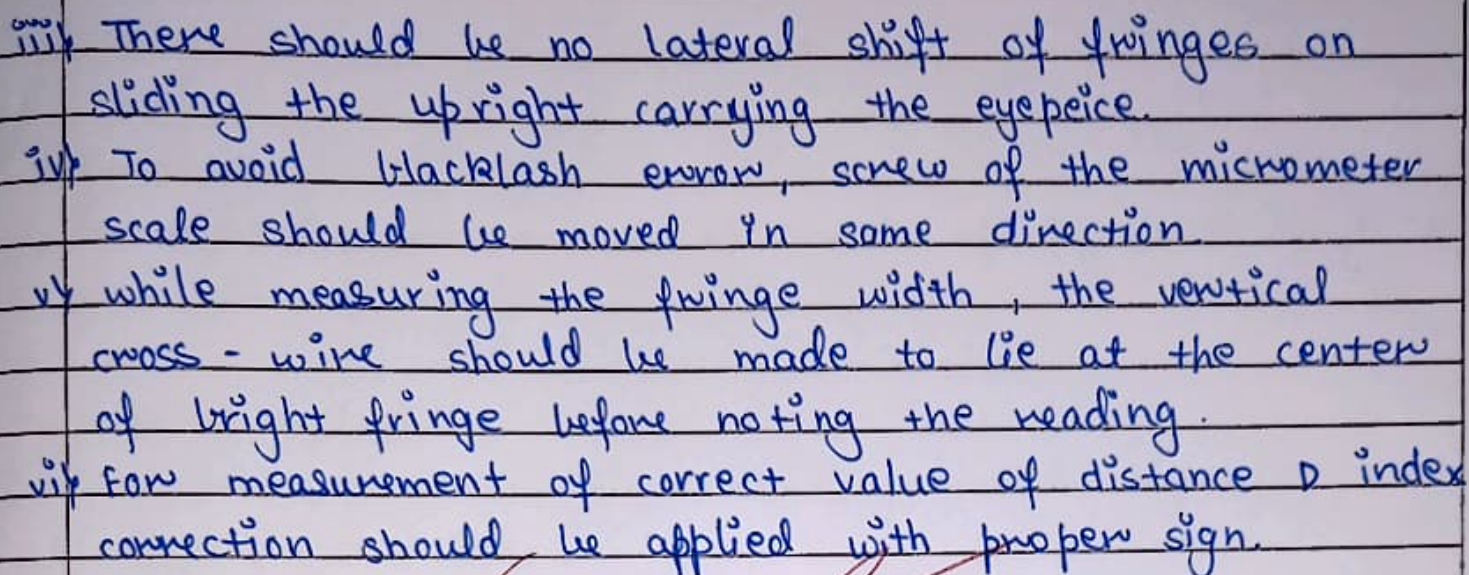 iii) There should be no lateral shift of fringes on
sliding the upright carrying the eyepeice.
iv) To avoid blacklash error, screw of the micrometer
scale should be moved in same direction
v) while measuring the fringe width, the vertical
cross - wire should be made to lie at the center
of bright fringe before noting the reading.
vi) For measurement of correct value of distance D index
correction should be applied with proper sign.